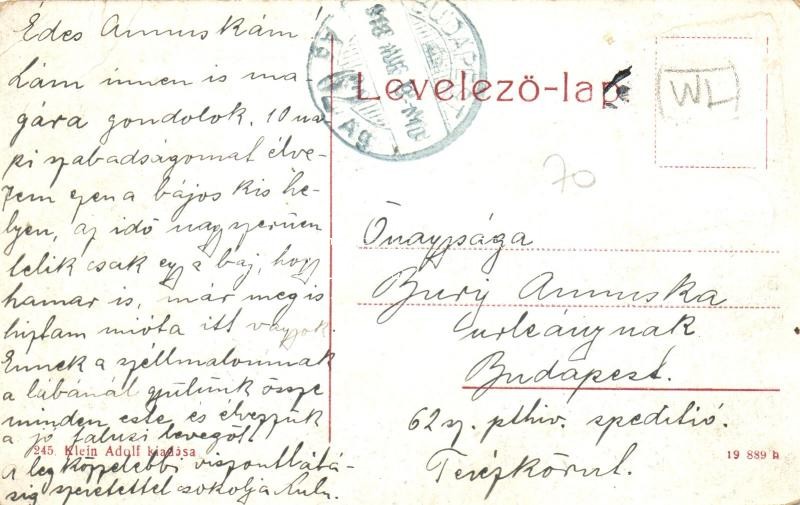 Édes Annuskám!
Lám innen is ma-
gára gondolok. 10 na-
pi szabadságomat élve-
zem ezen a bájos kis he-
lyen, az idő nagyszerűen
telik csak egy a baj, hogy
hamar is, már meg is
híztam mióta itt vagyok.
Ennek a szélmalomnak
a lábánál gyűlünk össze
minden este és élvezzük
a jó falusi levegőt.
245. Klein Adolf kiadása
A legközelebbi viszontlátá-
sig szeretettel csókolja
BUDAPEST
Levelező-lap
WL
70
Őnagysága
Annuska
urleánynak
Budapest.
62 sz. pthiv. speditió.
Terézkörut.
19 889 h